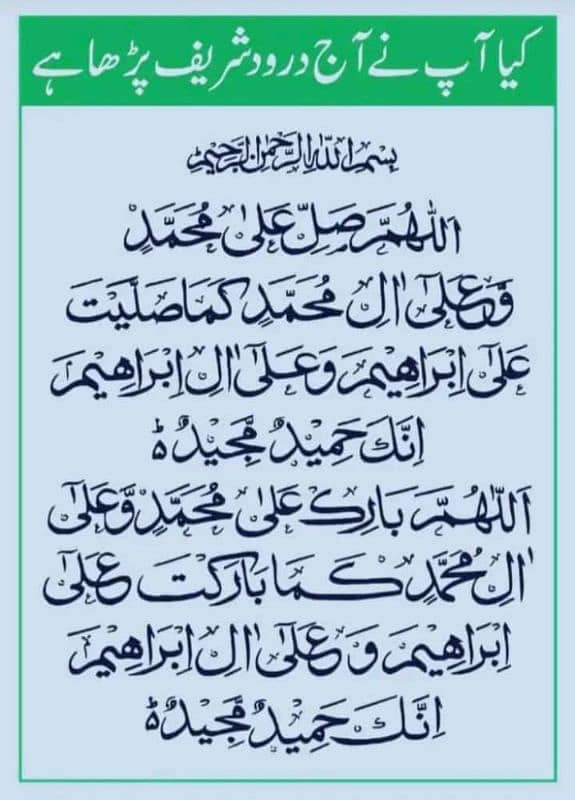 کیا آپ نے آج درود شریف پڑھا ہے
بِسْمِ اللهِ الرَّحْمٰنِ الرَّحِيْمِ
اَللّٰهُمَّ صَلِّ عَلٰى مُحَمَّدٍ
وَّعَلٰٓى اٰلِ مُحَمَّدٍ كَمَا صَلَّيْتَ
عَلٰٓى اِبْرَاهِيْمَ وَعَلٰٓى اٰلِ اِبْرَاهِيْمَ
اِنَّكَ حَمِيْدٌ مَّجِيْدٌ ؕ
اَللّٰهُمَّ بَارِكْ عَلٰى مُحَمَّدٍ وَّعَلٰٓى
اٰلِ مُحَمَّدٍ كَمَا بَارَكْتَ عَلٰٓى
اِبْرَاهِيْمَ وَ عَلٰٓى اٰلِ اِبْرَاهِيْمَ
اِنَّكَ حَمِيْدٌ مَّجِيْدٌ ؕ